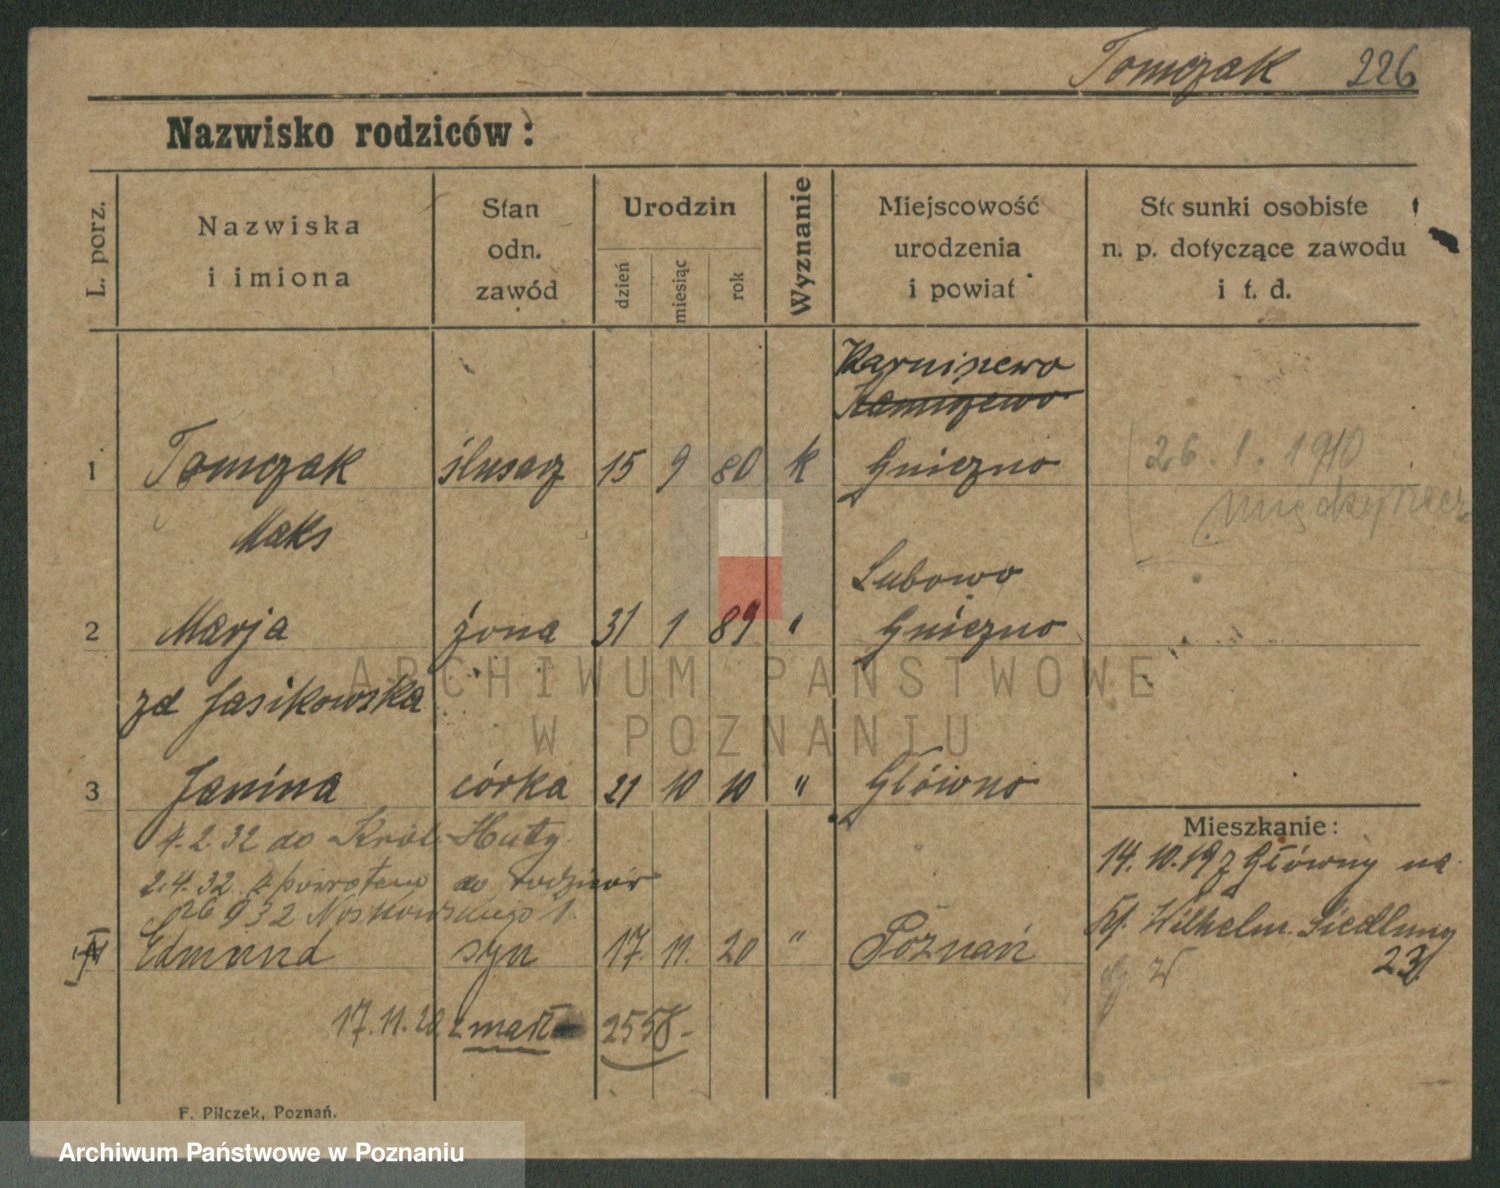 Tomczak 226
Nazwisko rodziców:
L. porz.
Nazwiska
i imiona
Stan
odn.
zawód
Urodzin
dzień
miesiąc
rok
Wyznanie
Miejscowość
urodzenia
i powiat
Stosunki osobiste
n. p. dotyczące zawodu
i t. d.
Karniszewo
1 Tomczak ślusarz 15 9 80 k Gniezno
26. 1. 1910
Maks
Łubowo
2 Marja żona 31 1 89 " Gniezno
zd Jasikowska
3 Janina córka 21 10 10 " Główno
4.2.32 do Król. Huty
2.4.32 z powrotem do rodziców
26 9 32 Noskowskiego 1.
Edmund syn 17. 11. 20 " Poznań
17.11.20 zmarł 2558-
Mieszkanie:
14. 10. 19 z Główny na
Wilhelm. Siedlung
23.
F. Pilczek, Poznań.
ARCHIWUM PAŃSTWOWE
W POZNANIU
Archiwum Państwowe w Poznaniu